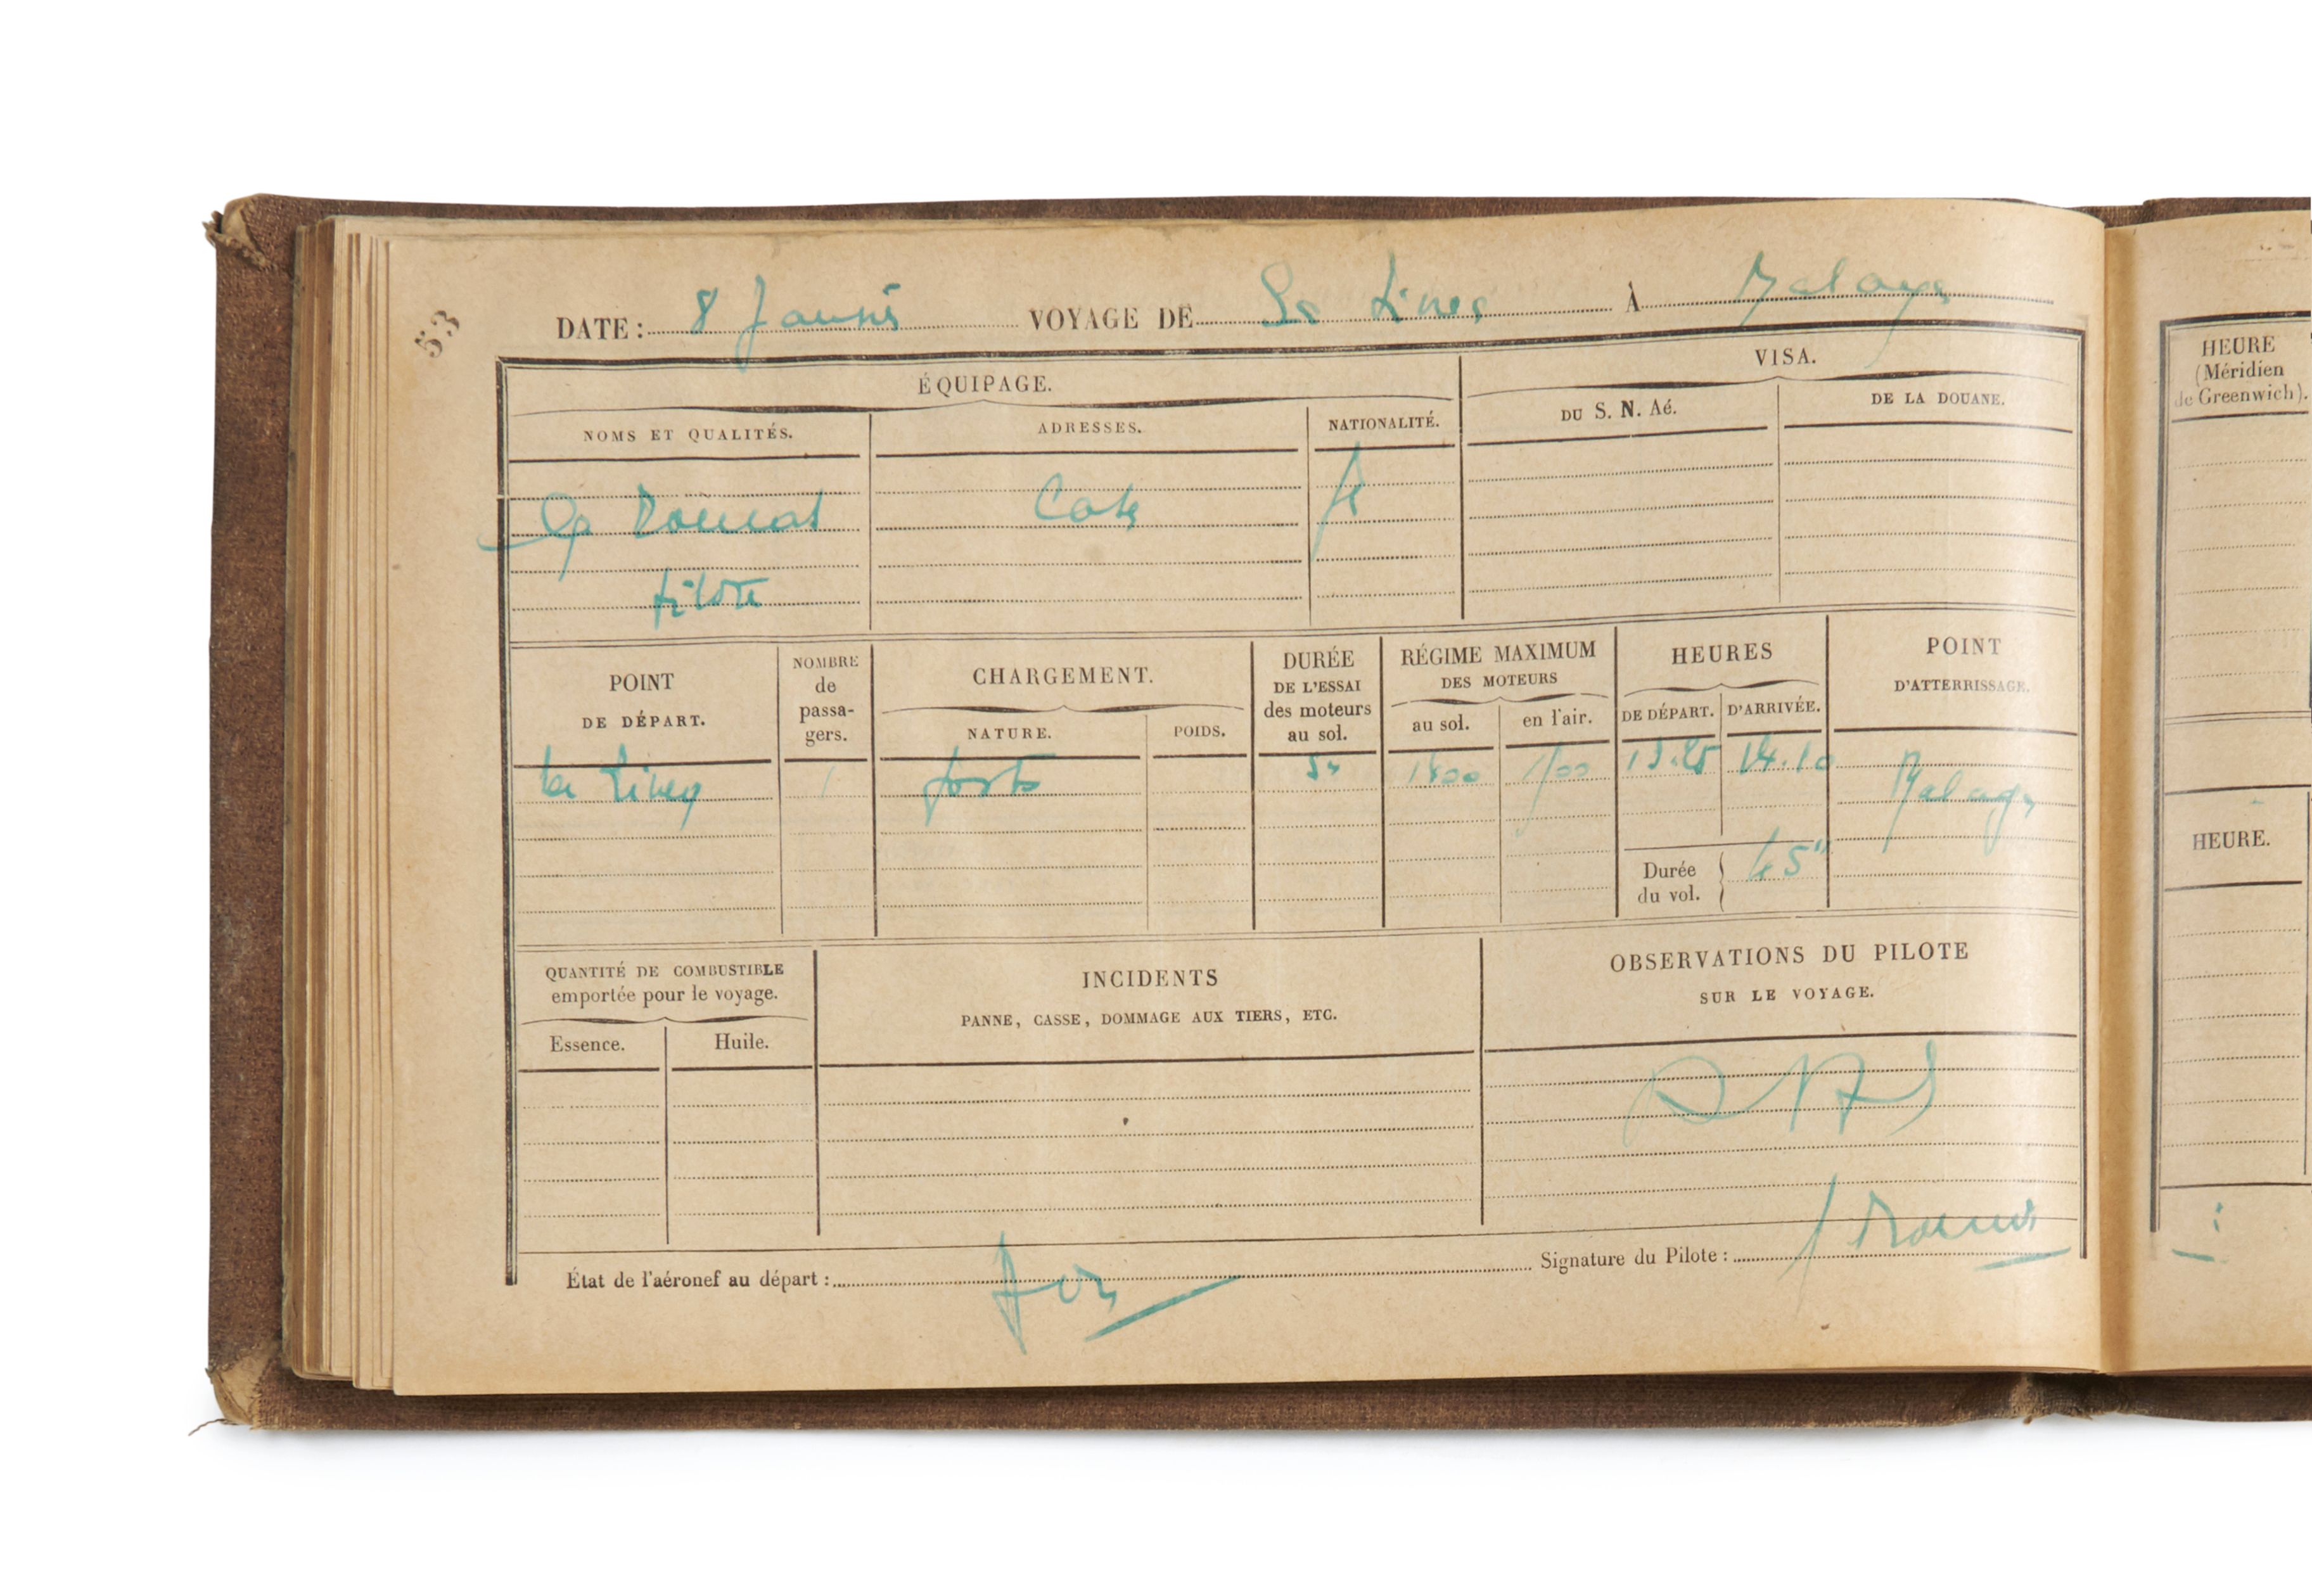 53
DATE : 8 Janvier VOYAGE DE La Linea À Malaga
ÉQUIPAGE.
VISA.
NOMS ET QUALITÉS.
ADRESSES.
NATIONALITÉ.
DU S. N. Aé.
DE LA DOUANE.
pilote
POINT
DE DÉPART.
NOMBRE
de
passa-
gers.
CHARGEMENT.
NATURE.
POIDS.
DURÉE
DE L'ESSAI
des moteurs
au sol.
RÉGIME MAXIMUM
DES MOTEURS
au sol.
en l'air.
HEURES
DE DÉPART.
D'ARRIVÉE.
POINT
D'ATTERRISSAGE.
La Linea 1 poste 13.25 14.10 Malaga
Durée
du vol.
45"
QUANTITÉ DE COMBUSTIBLE
emportée pour le voyage.
Essence.
Huile.
INCIDENTS
PANNE, CASSE, DOMMAGE AUX TIERS, ETC.
OBSERVATIONS DU PILOTE
SUR LE VOYAGE.
RAS
État de l'aéronef au départ : bon
Signature du Pilote :
HEURE
(Méridien
de Greenwich).
HEURE.